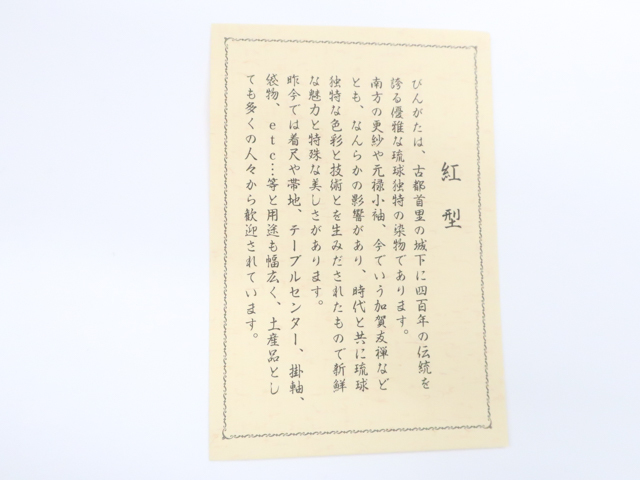 紅型
びんがたは、古都首里の城下に四百年の伝統を
誇る優雅な琉球独特の染物であります。
南方の更紗や元禄小袖、今でいう加賀友禅など
とも、なんらかの影響があり、時代と共に琉球
独特な色彩と技術とを生みだされたもので新鮮
な魅力と特殊な美しさがあります。
昨今では着尺や帯地、テーブルセンター、掛軸、
袋物、etc…等と用途も幅広く、土産品とし
ても多くの人々から歓迎されています。